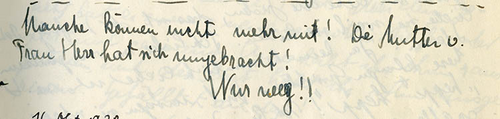 Manche können nicht mehr mit! Die Mutter v.
Frau Herr hat sich umgebracht!
Nur weg!!